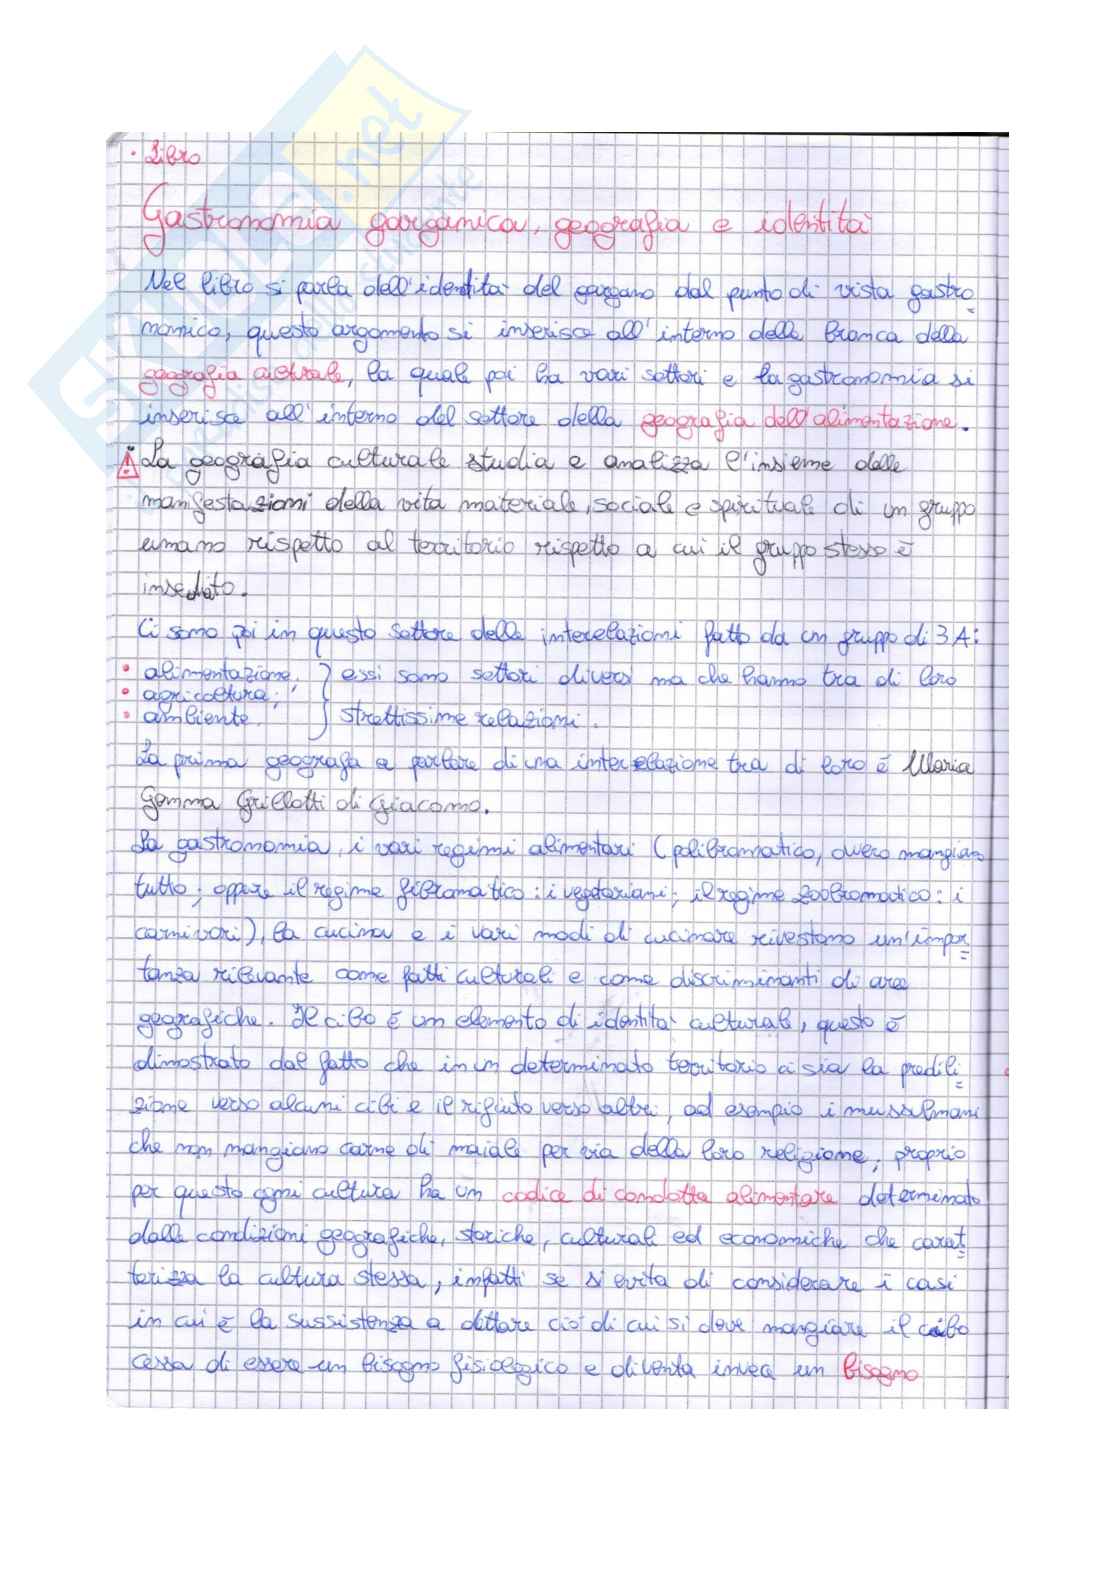 • Libro
Gastronomia garganica, geografia e identità
Nel libro si parla dell'identità del gargano dal punto di vista gastro
nomico, questo argomento si inserisce all'interno della branca della
geografia culturale, la quale poi ha vari settori e la gastronomia si
inserisce all'interno del settore della geografia dell'alimentazione.
La geografia culturale studia e analizza l'insieme delle
manifestazioni della vita materiale, sociale e spirituale di un gruppo
umano rispetto al territorio rispetto a cui il gruppo stesso è
insediato.
Ci sono poi in questo settore delle interelazioni fatto da un gruppo di 3 A:
• alimentazione; } essi sono settori diversi ma che hanno tra di loro
• agricoltura;
• ambiente. strettissime relazioni.
La prima geografa a parlare di una interelazione tra di loro è Maria
Gemma Grillotti di Giacomo.
La gastronomia, i vari regimi alimentari (polibromatico, ovvero mangiano
tutto; oppure il regime fibromatico: i vegetariani; il regime zoobromatico: i
carnivori), la cucina e i vari modi di cucinare rivestono un'impor
tanza rilevante come fatti culturali e come discriminanti di aree
geografiche. Il cibo è un elemento di identità culturale, questo è
dimostrato dal fatto che in un determinato territorio ci sia la predile
zione verso alcuni cibi e il rifiuto verso altri, ad esempio i mussulmani
che non mangiano carne di maiale per via della loro religione; proprio
per questo ogni cultura ha un codice di condotta alimentare determinato
dalle condizioni geografiche, storiche, culturali ed economiche che carat
terizza la cultura stessa, infatti se si evita di considerare i casi
in cui è la sussistenza a dettare ciò di cui si deve mangiare il cibo
cessa di essere un bisogno fisiologico e diventa invece un bisogno
SKUOLA.net